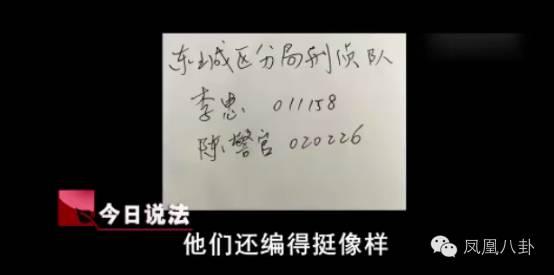 东城区分局刑侦队
李忠 011158
陈警官 020226
今日说法
他们还编得挺像样
凤凰八卦